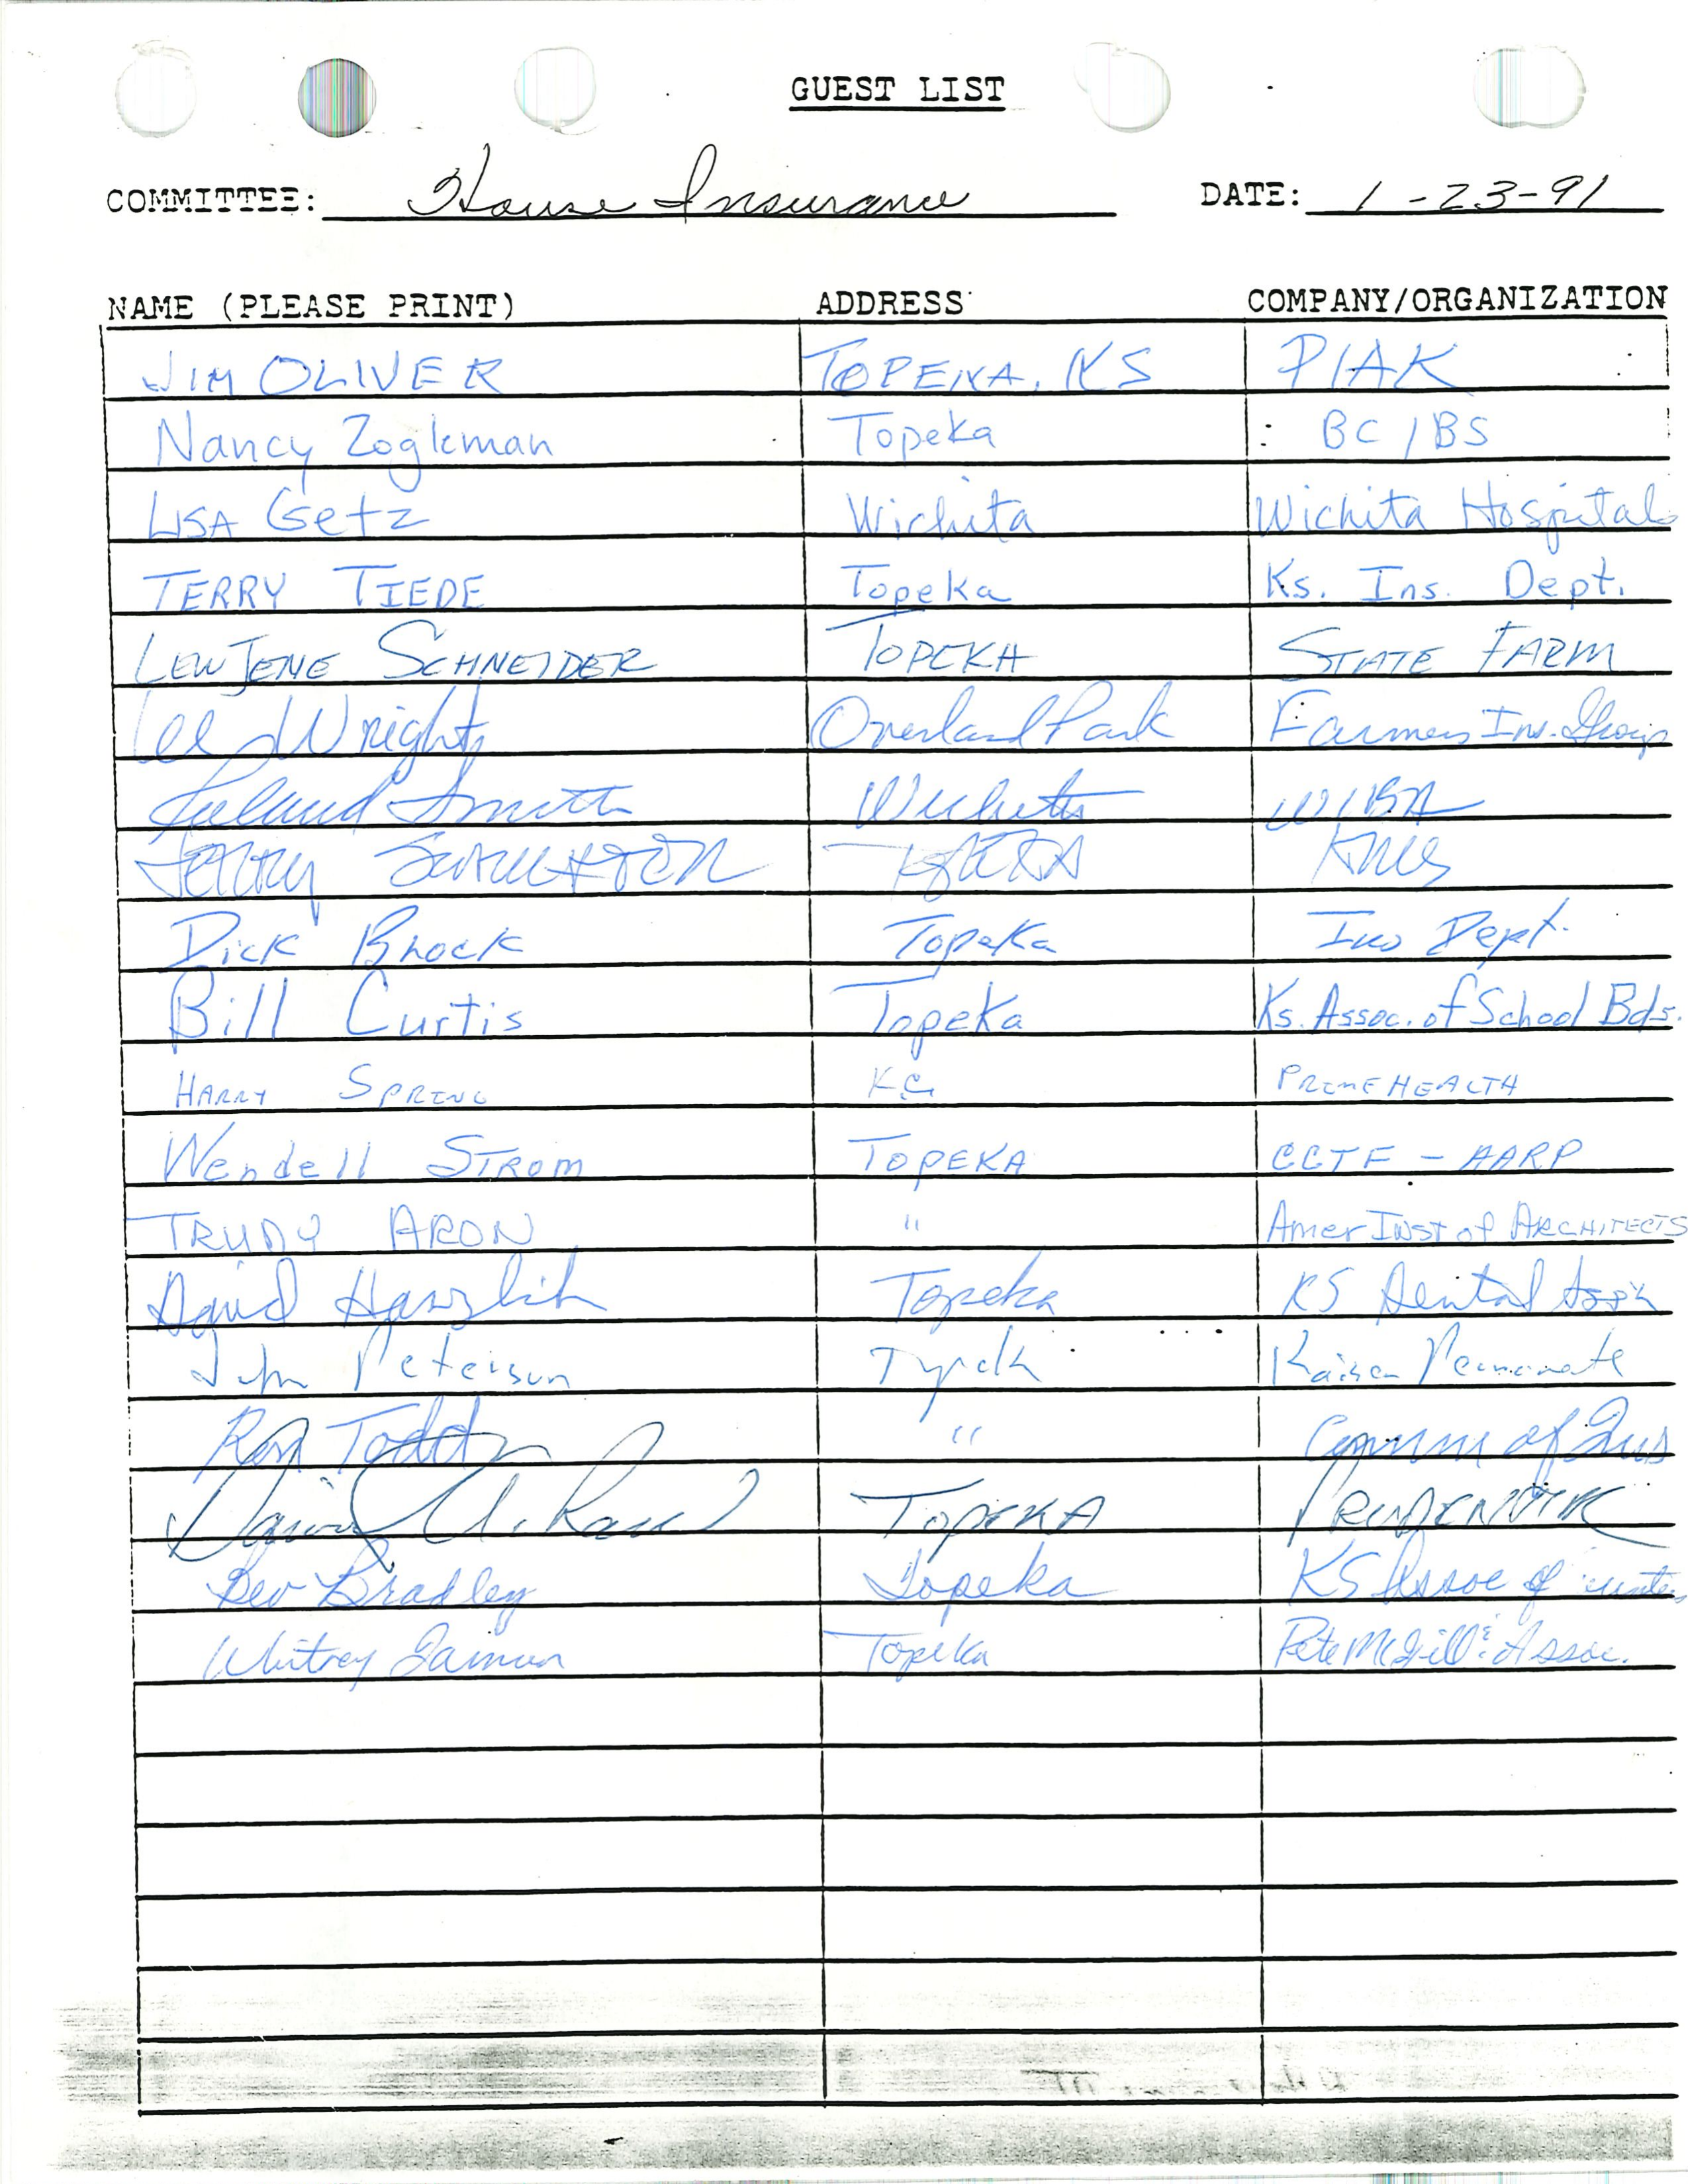 GUEST LIST
COMMITTEE: House Insurance DATE: 1-23-91
NAME (PLEASE PRINT) ADDRESS COMPANY/ORGANIZATION
JIM OLIVER TOPEKA, KS PIAK
Nancy Zogleman Topeka BC/BS
LISA Getz Wichita Wichita Hospitals
TERRY TIEDE Topeka Ks. Ins. Dept.
LEWJENE SCHNEIDER TOPEKA STATE FARM
Lee Wright Overland Park Farmers Ins. Group
Smith Wichita WIBA
TOPEKA
Dick Brock Topeka Ins Dept.
Bill Curtis Topeka Ks. Assoc. of School Bds.
HARRY SPRING KC PRIMEHEALTH
Wendell STROM TOPEKA CCTF - AARP
TRUDY ARON " Amer INST of ARCHITECTS
David Hanzlick Topeka KS Dental Ass'n
Jim Peterson Topeka Kaiser Permanente
Ron Todd " Comm of Ins
David TOPEKA
Bev Bradley Topeka KS Assoc of Counties
Whitney Damron Topeka Pete McGill & Assoc.